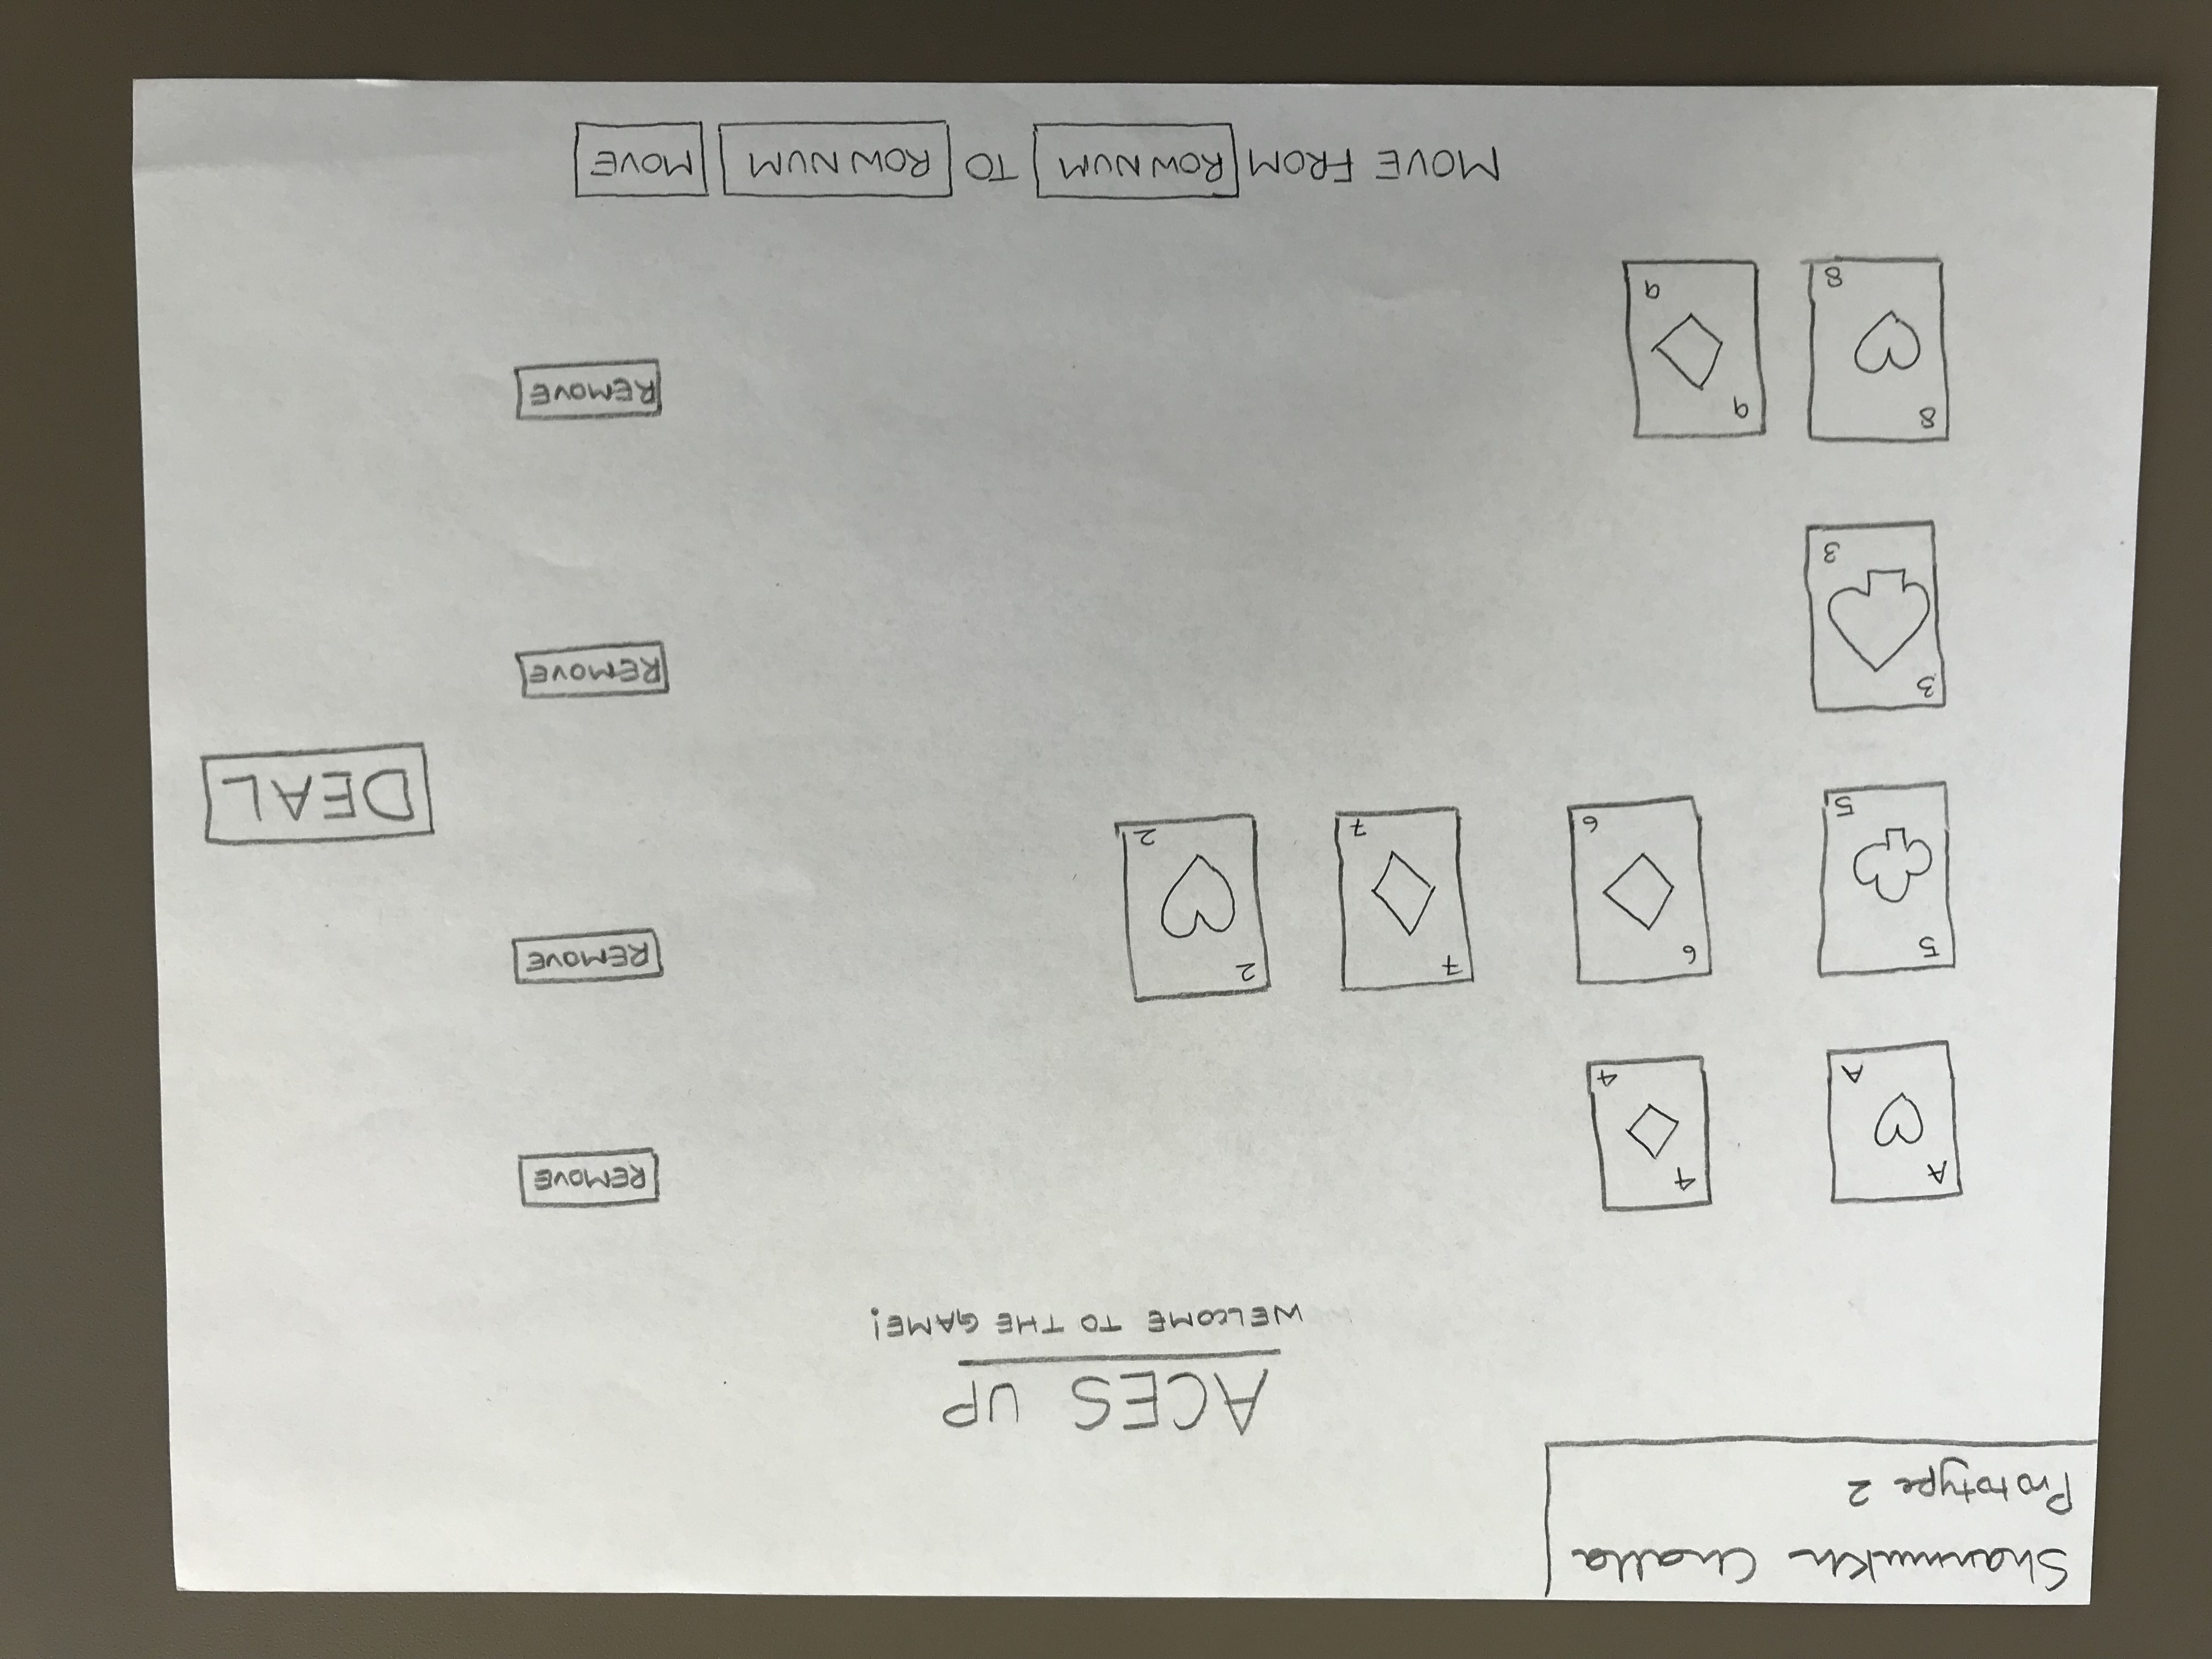 Shanmukh Challa
Prototype 2
ACES UP
WELCOME TO THE GAME!
A
A
4
4
REMOVE
5
5
6
6
7
7
2
2
REMOVE
DEAL
3
3
REMOVE
8
8
9
9
REMOVE
MOVE FROM ROW NUM TO ROW NUM MOVE